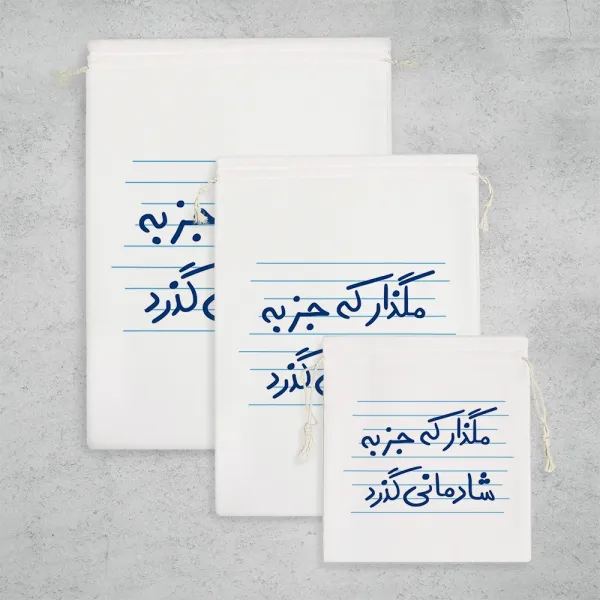 جز به
ی گذرد
مگذار که جز به
ی گذرد
مگذار که جز به
شادمانی گذرد